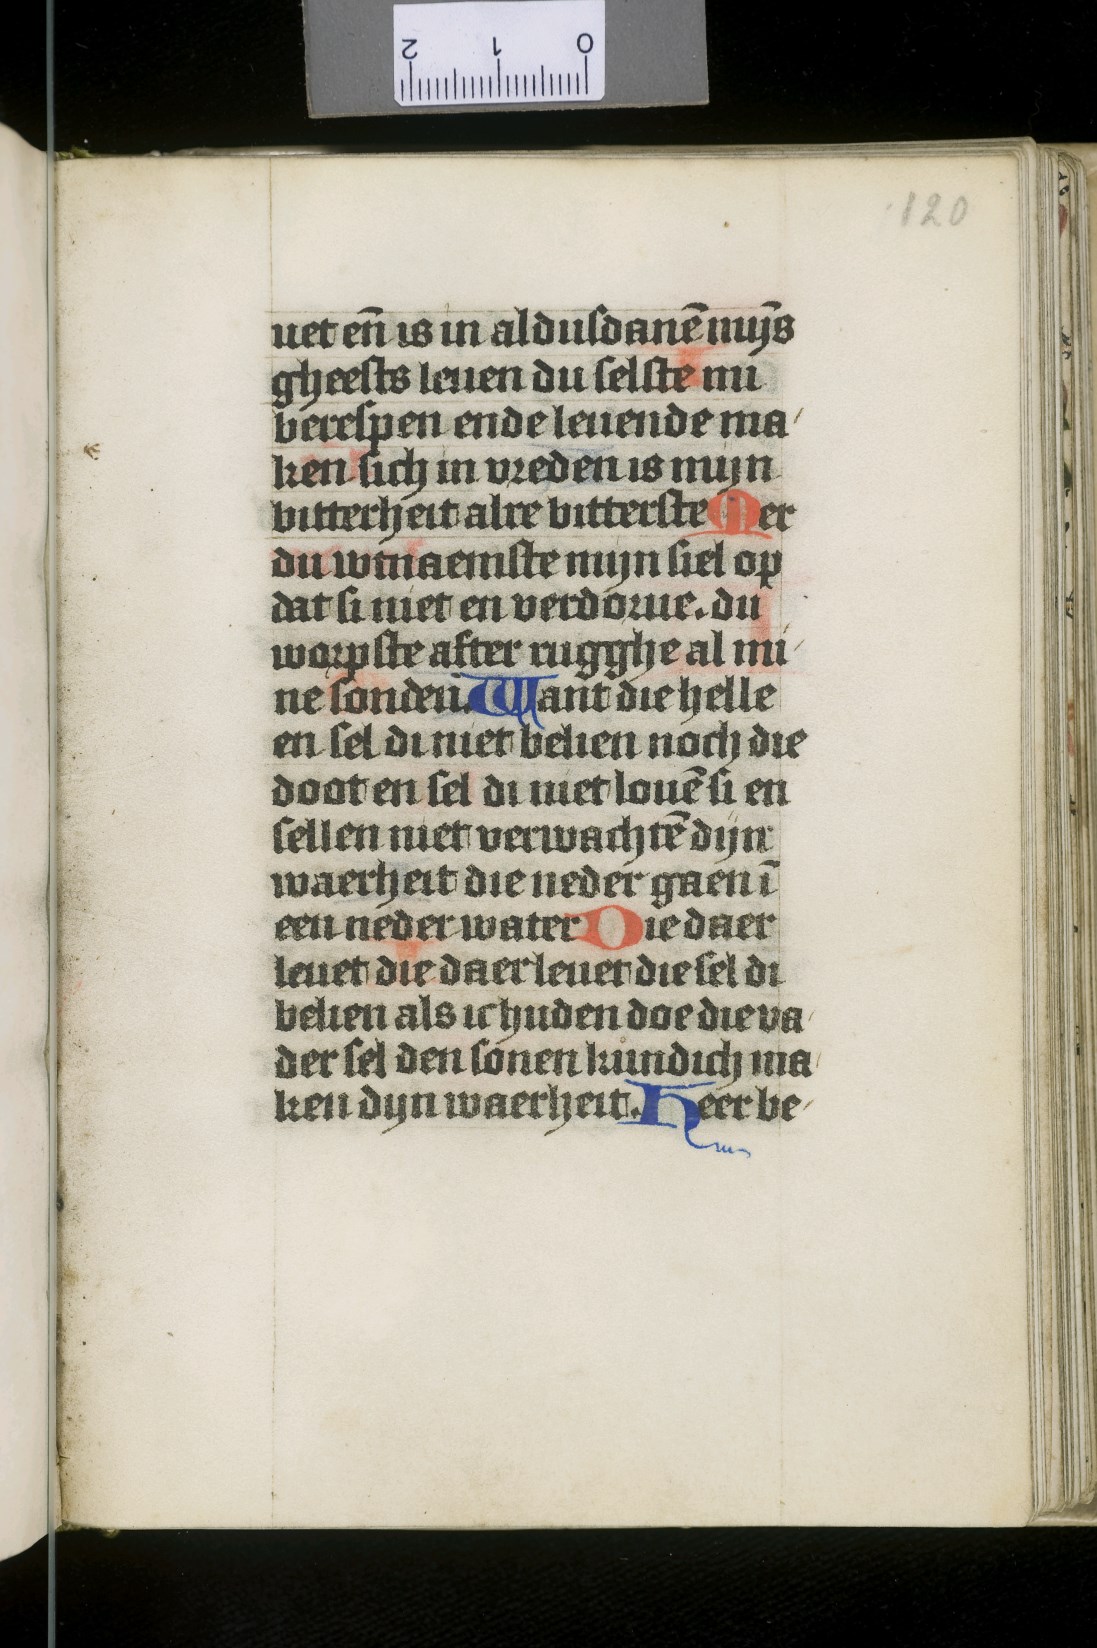 120
uet en̄ is in aldusdanē mijs
gheests leuen du selste mi
berespen ende leuende ma
ken sich in vreden is mijn
bitterheit alre bitterste Mer
du wtnaemste mijn siel op
dat si niet en verdorue. du
worpste after rugghe al mi
ne sonden. Want die helle
en sel di niet belien noch die
doot en sel di niet louē si en
sellen niet verwachtē dijn
waerheit die neder gaen ī
een neder water Die daer
leuet die daer leuet die sel di
belien als ic huden doe die va
der sel den sonen kundich ma
ken dijn waerheit. Heer be